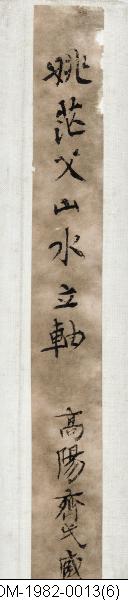 姚茫父山水立軸
高陽齊氏藏
OM-1982-0013(6)